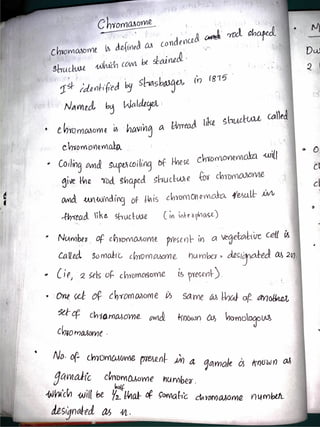 Chromosome
Chromosome is defined as condensed and rod shaped
structure which can be stained.
Ist identified by Strasbarger in 1875
Named by Waldeyer
• Chromosome is having a thread like structure called
chromonemata.
• Coiling and supercoiling of these chromonemata will
give the rod shaped structure for chromosome
and unwinding of this chromonemata result in
thread like structure (in interphase)
• Number of chromosome present in a vegetative cell is
called somatic chromosome number. designated as 2n.
• (ie, 2 sets of chromosome is present)
• One set of chromosome is same as that of another
set of chromosome and known as homologous
chromosome.
• No. of chromosome present in a gamate is known as
gamatic chromosome number.
which will be ½ half that of somatic chromosome number
designated as n.